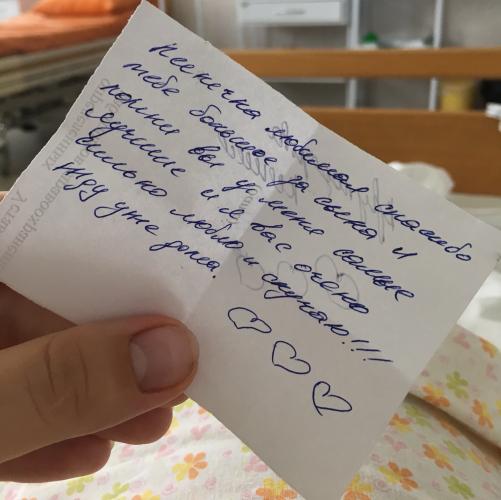 Ксенечка любимая спасибо
тебе большое за сынка и
помни вы у меня самые
лучшие и я вас очень
сильно люблю и скучаю!!!
Жду уже дома.